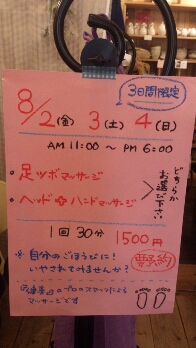 3日間限定
8/2(金) 3(土) 4(日)
AM 11:00 ~ PM 6:00
・足ツボマッサージ
・ヘッド✚ハンドマッサージ
どちらか
お選び下さい
1回30分 1500円
※自分のごほうびに!
いやされてみませんか?
要予約
のプロスタッフによる
マッサージです